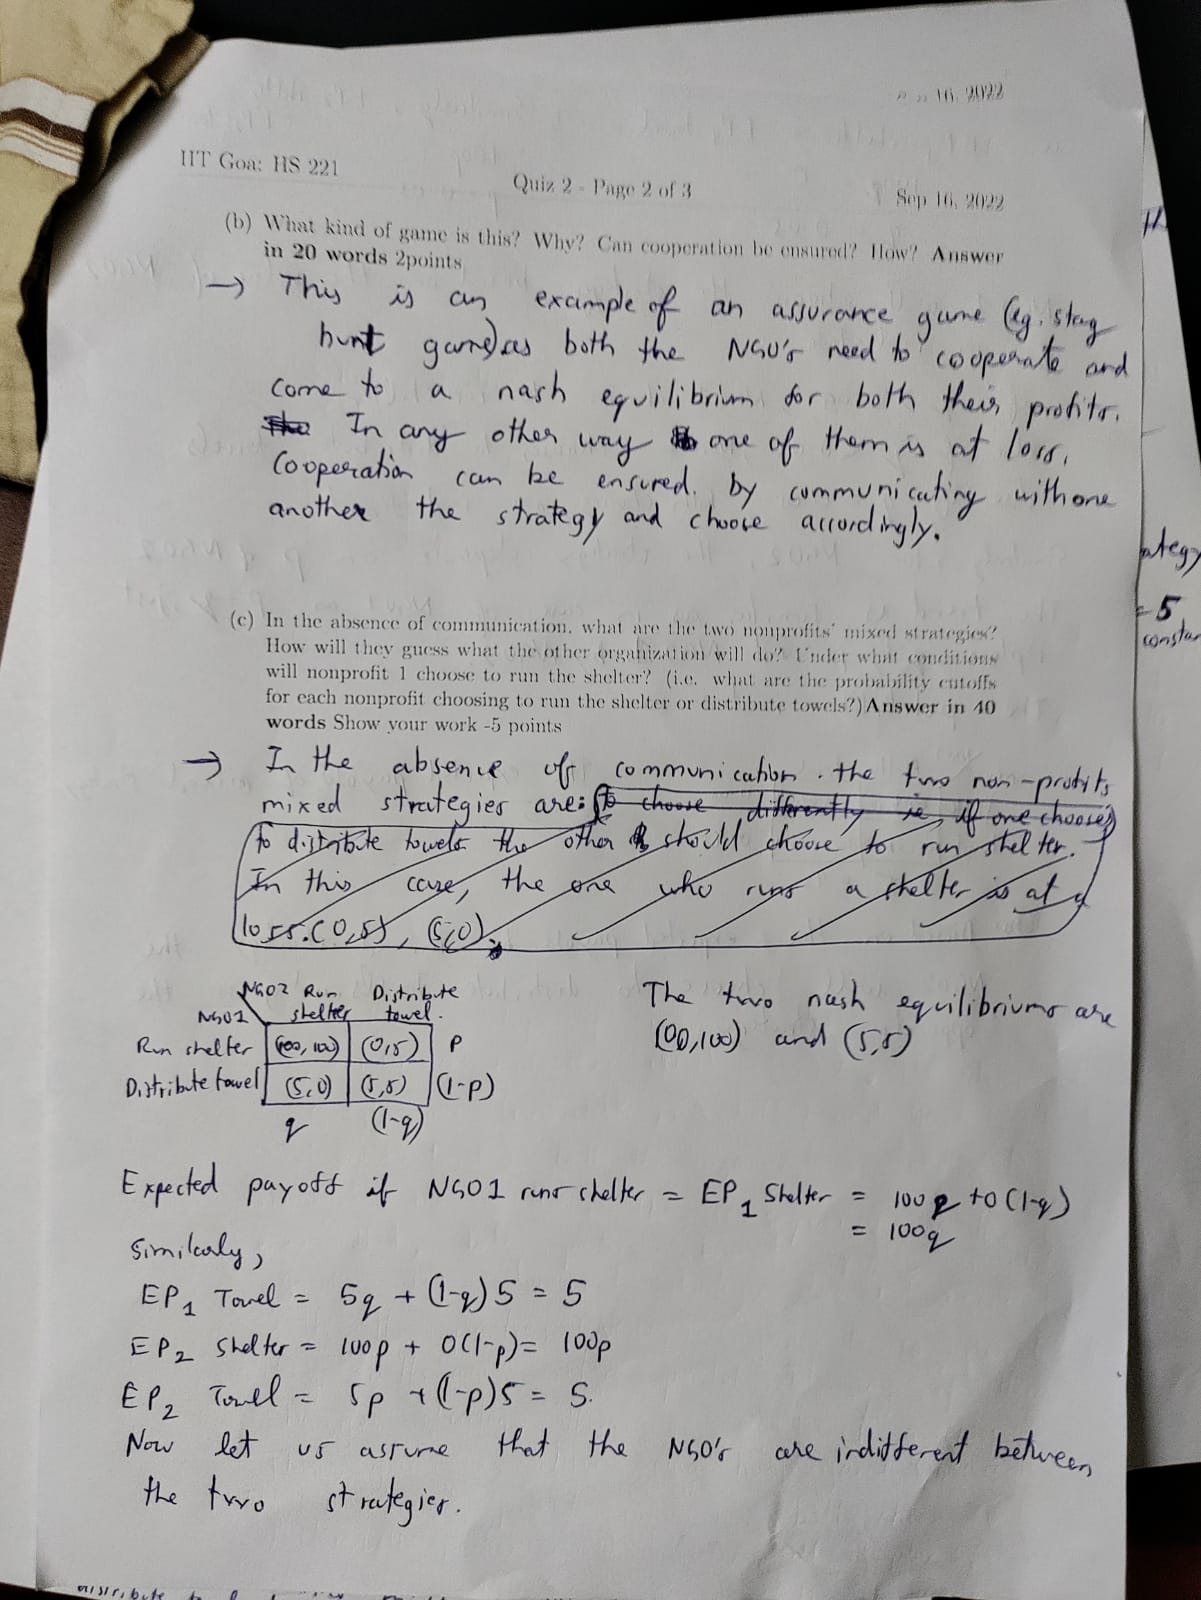 16, 2022
IIT Goa: HS 221
Quiz 2 - Page 2 of 3
Sep 16, 2022
(b) What kind of game is this? Why? Can cooperation be ensured? How? Answer
in 20 words 2points
→ This is an example of an assurance game (eg. stag
hunt game) as both the NGO's need to cooperate and
come to a nash equilibrium for both their profits.
In any other way one of them is at loss.
Cooperation can be ensured. by communicating with one
another the strategy and choose accordingly.
ategy
= 5
constan
(c) In the absence of communication, what are the two nonprofits' mixed strategies?
How will they guess what the other organization will do? Under what conditions
will nonprofit 1 choose to run the shelter? (i.e. what are the probability cutoffs
for each nonprofit choosing to run the shelter or distribute towels?)Answer in 40
words Show your work -5 points
→ In the absence of communication. the two non-profits
mixed strategies are: to choose differently ie, if one chooses
to distribute towels the other should choose to run shelter.
In this case, the one who runs a shelter is at a
loss. (0,5), (5,0).
NGO2 Run Distribute
NGO1 shelter towel.
Run shelter (100, 100) (0,5) P
Distribute towel (5,0) (5,5) (1-p)
q (1-q)
The two nash equilibriums are
(00,100) and (5,5)
Expected payoff if NGO1 runs shelter = EP1 Shelter = 100q +0(1-q)
= 100q
Similarly,
EP1 Towel = 5q + (1-q)5 = 5
EP2 Shelter = 100p + 0(1-p)= 100p
EP2 Towel = 5p + (1-p)5 = 5.
Now let us assume that the NGO's are indifferent between
the two strategies.